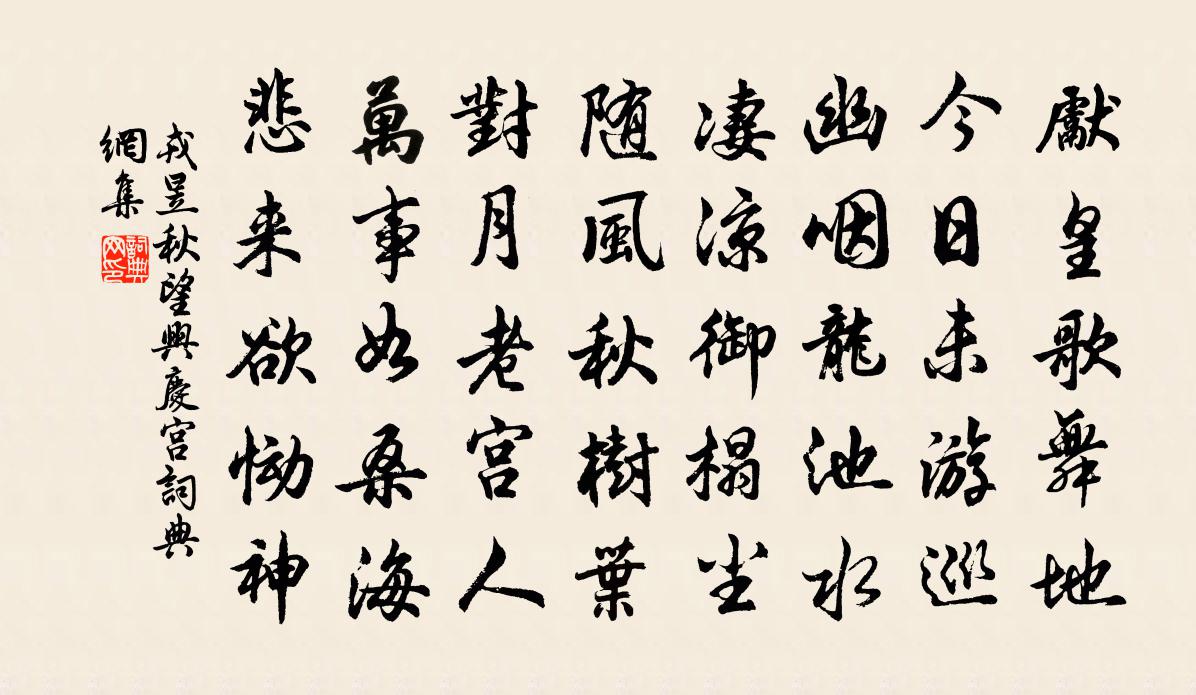 獻皇歌舞地
今日未游巡
幽咽龍池水
淒涼御榻尘
随風秋樹葉
對月老宫人
萬事如桑海
悲来欲恸神
戎昱秋望興慶宫詞典
網集
詞典
网印